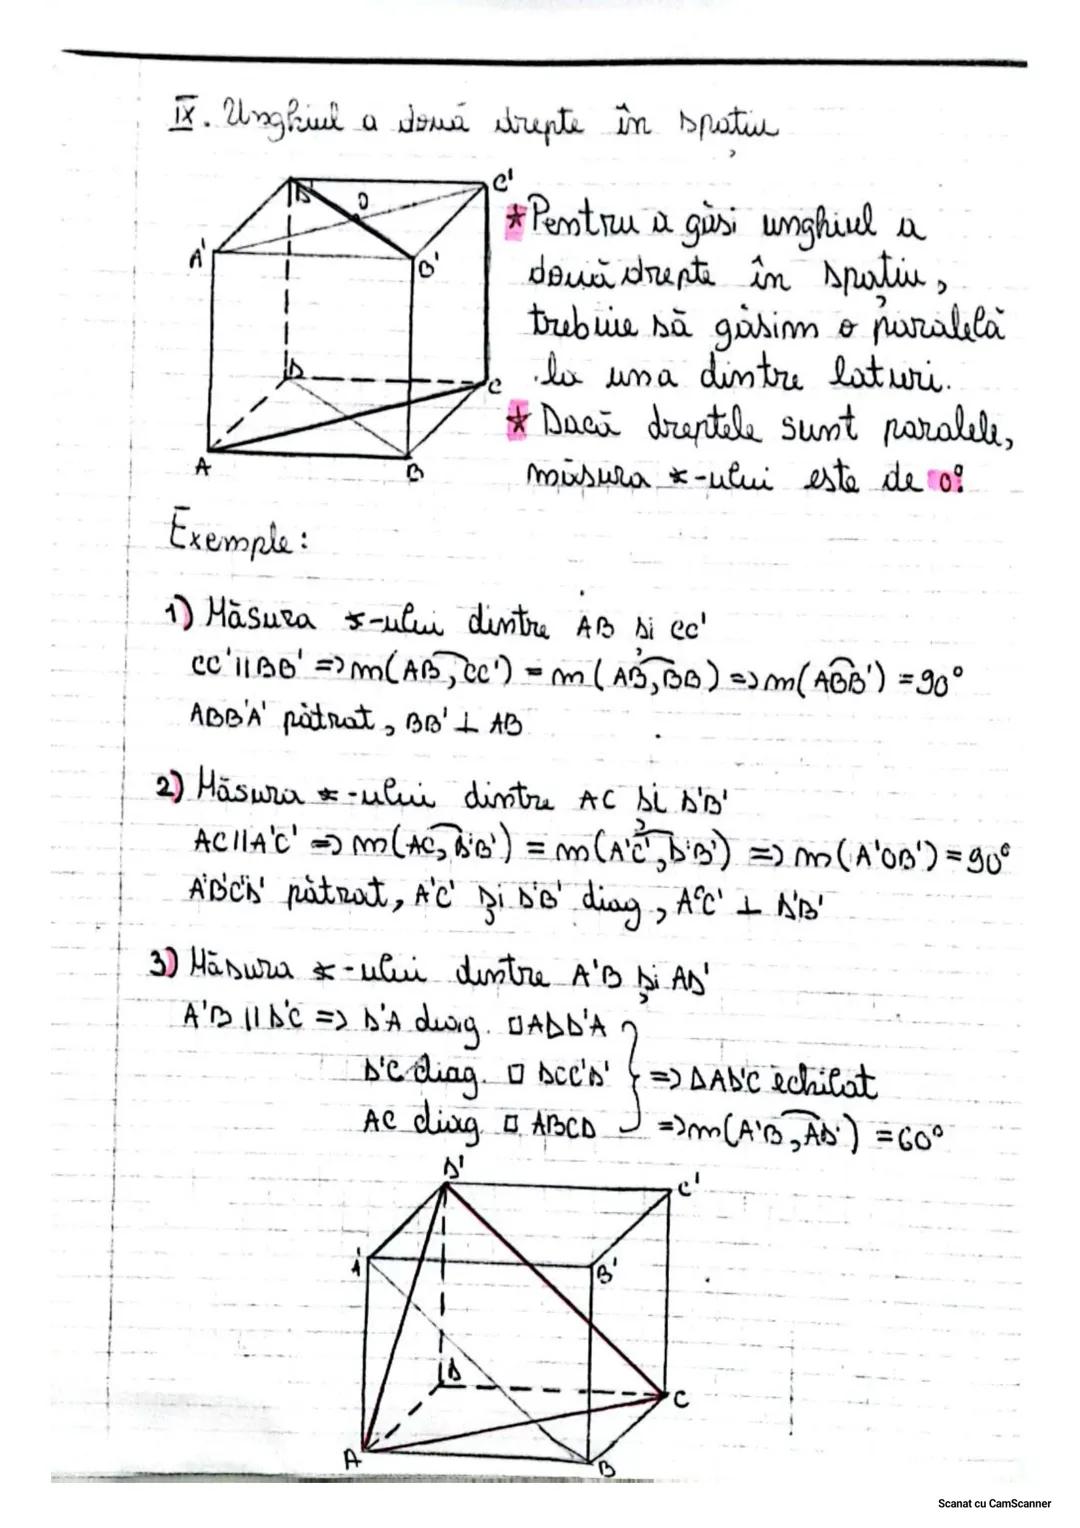 IX. Unghiul a două drepte în spațiu
D'
O
C'
A'
B'
D
C
A
B
* Pentru a găsi unghiul a
două drepte în spațiu,
trebuie să găsim o paralelă
la una dintre laturi.
* Dacă dreptele sunt paralele,
măsura ∢-ului este de 0°.
Exemple:
1) Măsura ∢-ului dintre AB și CC'
CC' || BB' => m(AB, CC') = m(AB, BB) => m(ABB') = 90°
ABB'A' pătrat, BB' ⊥ AB
2) Măsura ∢-ului dintre AC și D'B'
AC || A'C' => m(AC, D'B') = m(A'C', D'B') => m(A'OB') = 90°
A'B'C'D' pătrat, A'C' și D'B' diag, A'C' ⊥ D'B'
3) Măsura ∢-ului dintre A'B și AD'
A'B || D'C => D'A diag. □ADD'A
D'C diag. □ DCC'D' } => ΔAD'C echilat
AC diag □ ABCD => m(A'B, AD') = 60°
D'
C'
A'
B'
D
C
A
B
Scanat cu CamScanner